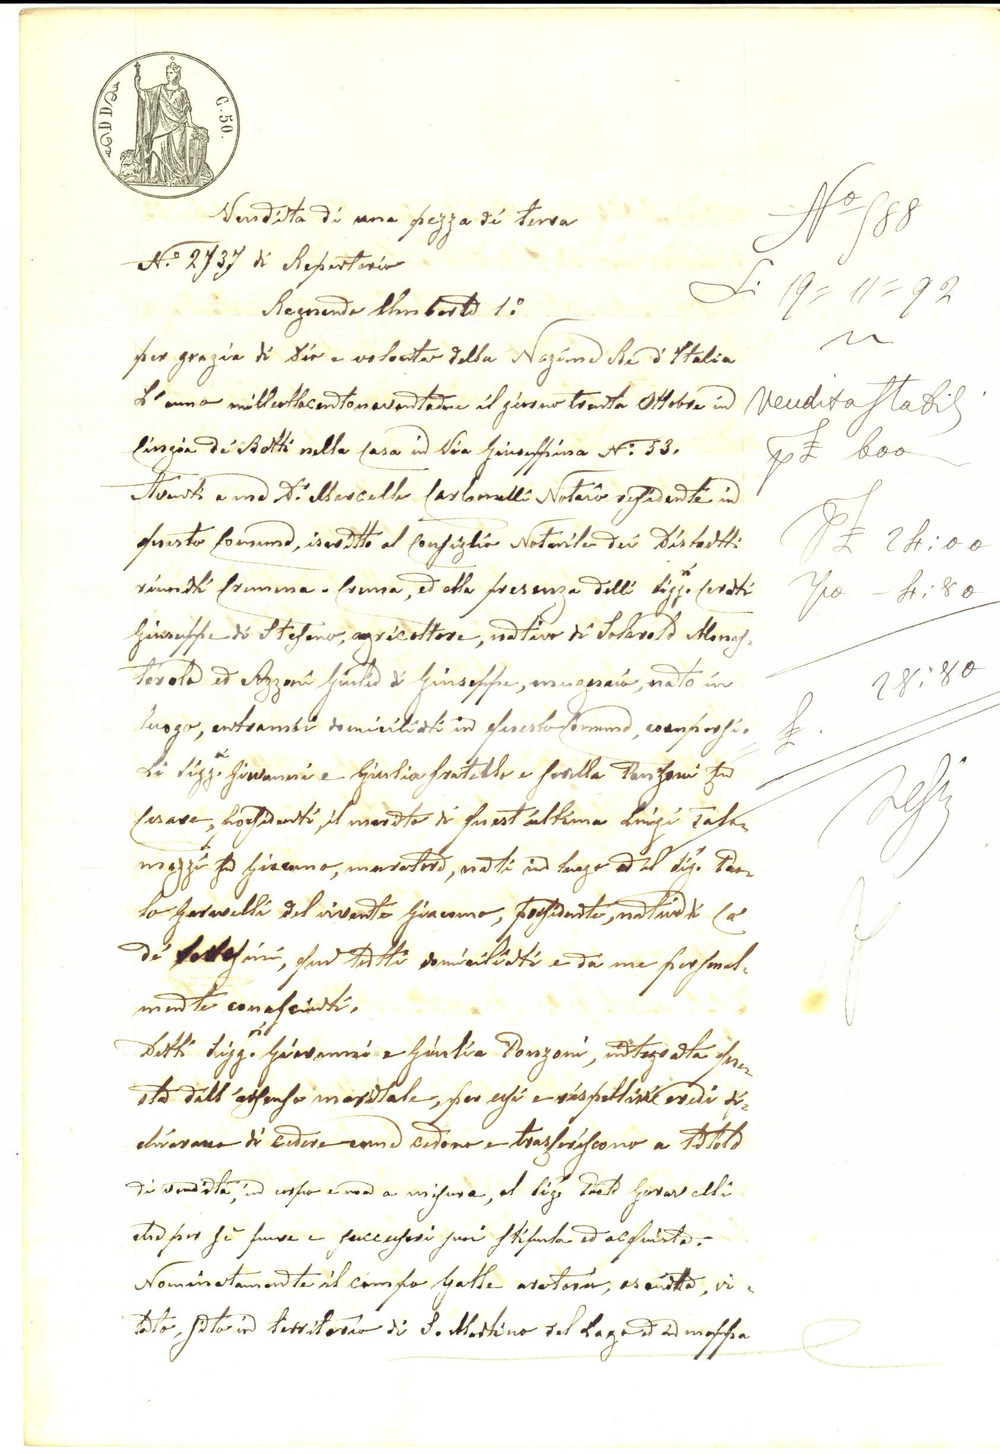 C. 50.
Vendita di una pezza di terra
N.° 2737 di Repertorio
Regnando Umberto 1.°
per grazia di Dio e volontà della Nazione Re d'Italia
L'anno milleottocentonovantadue il giorno trenta Ottobre in
Cingia de' Botti nella casa in Via Giuseppina N.° 53.
Avanti a me D.r Marcello Carbonelli Notaro residente in
questo Comune, iscritto al Consiglio Notarile dei Distretti
riuniti Cremona e Crema, ed alla presenza delli Sigg.ri Cerati
Giuseppe di Stefano, agricoltore, nativo di Solarolo Monas-
terolo ed Azzoni Giulio di Giuseppe, mugnaio, nato in
luogo, entrambi domiciliati in questo Comune,
Li Sigg.ri Giovanni e Giulia fratello e sorella Ponzoni fu
Cesare, possidenti, il marito di quest'ultima Luigi Tala-
mazzi fu Giacomo, muratore, nati in luogo ed il Sig. Pao-
lo Garavelli del vivente Giacomo, possidente, nativo di Cà
de' Soresini, qui tutti domiciliati e da me personal-
mente conosciuti.
Detti Sigg.ri Giovanni e Giulia Ponzoni, integrata que-
sta dall'assenso maritale, per essi e rispettivi eredi di-
chiarano di cedere come cedono e trasferiscono a titolo
di vendita, in corpo e non a misura, al Sig. Paolo Garavelli
che per sé pure e successori suoi stipula ed acquista.
Nominatamente il campo Valle aratorio, asciutto, vi-
tato, sito in territorio di S. Martino del Lago ed in mappa
N° 588
Li 19 = 11 = 92
Vendita Stabili
p £ 600
£ 24:00
7/10 - 4:80
£. 28:80